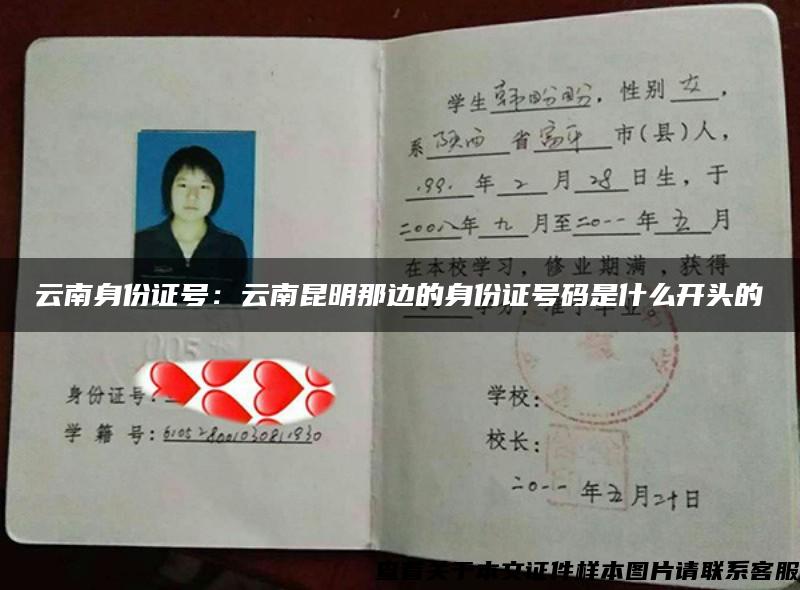 学生韩盼盼，性别女，
系陕西省富平市(县)人，
1991年2月28日生，于
二00八年九月至二0一一年五月
在本校学习，修业期满，获得
云南身份证号：云南昆明那边的身份证号码是什么开头的
身份证号：
学籍号：
学校：
校长：
二0一一年五月二十日
查看关于本文证件样本图片请联系客服